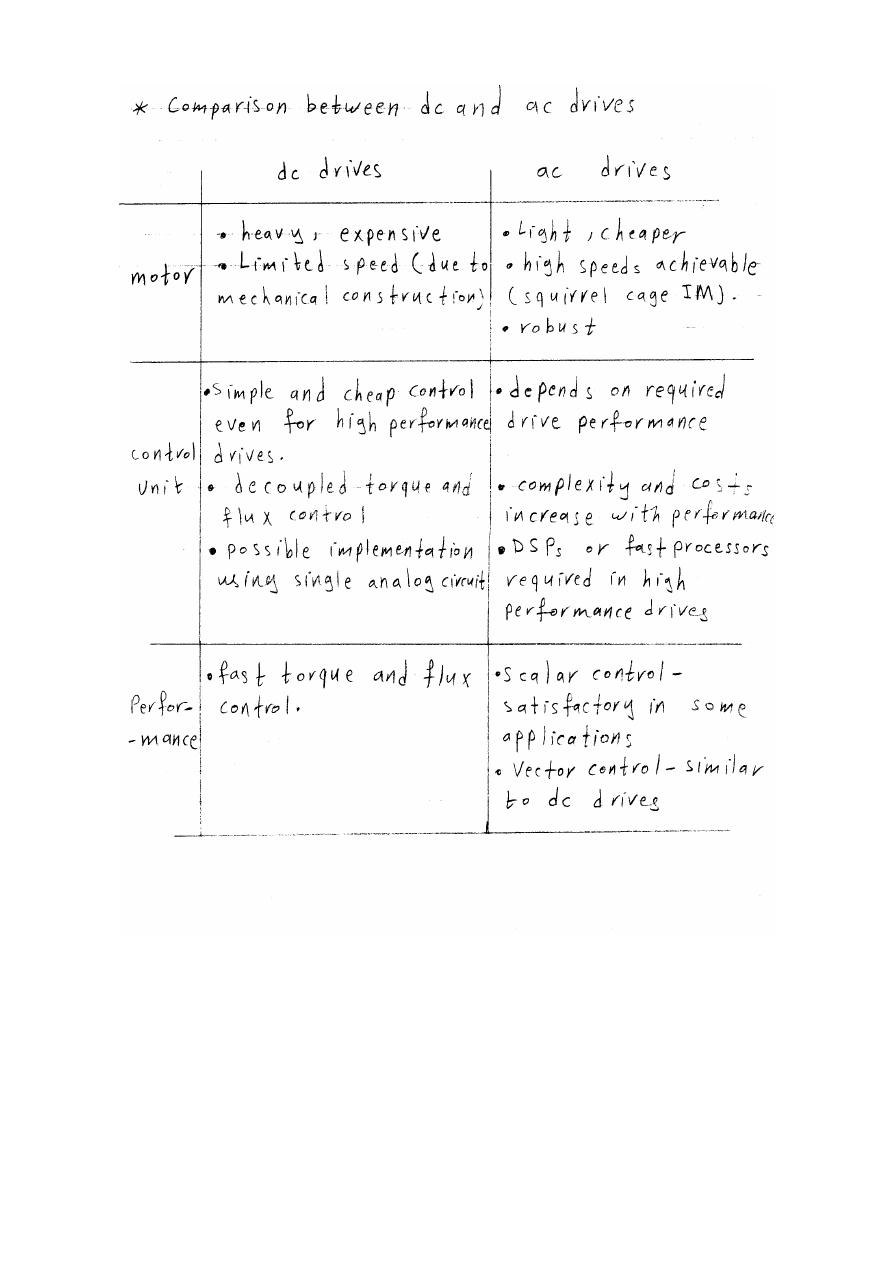 * Comparison between dc and ac drives
dc drives
ac drives
motor
• heavy, expensive
• Limited speed (due to
mechanical construction)
• Light, cheaper
• high speeds achievable
(squirrel cage IM).
• robust
control
Unit
• Simple and cheap control
even for high performance
drives.
• decoupled torque and
flux control
• possible implementation
using single analog circuit
• depends on required
drive performance
• complexity and costs
increase with performance
• DSPs or fast processors
required in high
performance drives
Perfor-
-mance
• fast torque and flux
control.
• Scalar control-
satisfactory in some
applications
• Vector control- similar
to dc drives